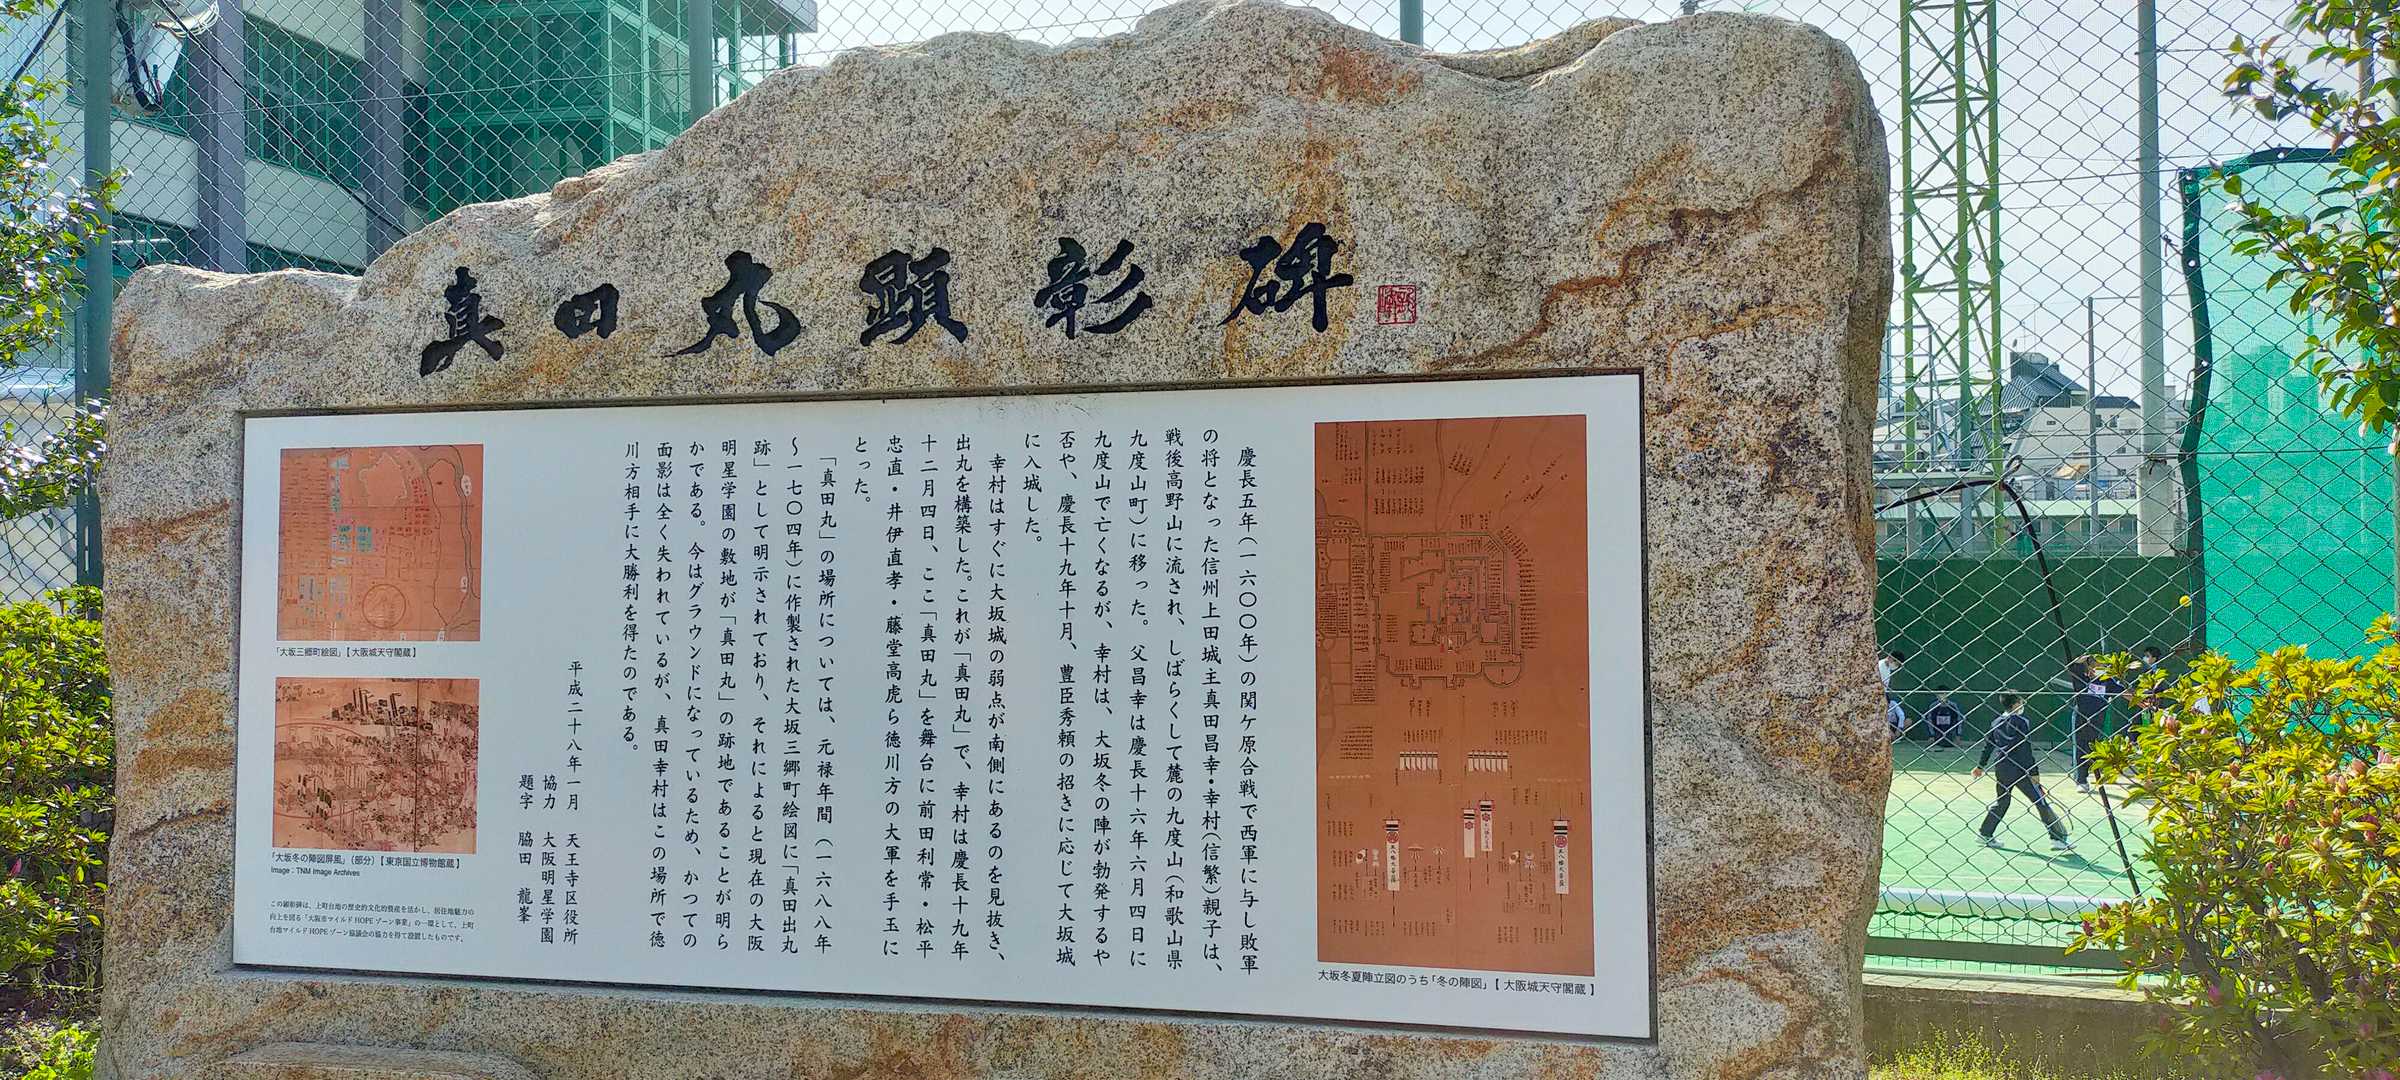 真田丸顕彰碑
慶長五年(一六〇〇年)の関ケ原合戦で西軍に与し敗軍
の将となった信州上田城主真田昌幸・幸村(信繁)親子は、
戦後高野山に流され、しばらくして麓の九度山(和歌山県
九度山町)に移った。父昌幸は慶長十六年六月四日に
九度山で亡くなるが、幸村は、大坂冬の陣が勃発するや
否や、慶長十九年十月、豊臣秀頼の招きに応じて大坂城
に入城した。
幸村はすぐに大坂城の弱点が南側にあるのを見抜き、
出丸を構築した。これが「真田丸」で、幸村は慶長十九年
十二月四日、ここ「真田丸」を舞台に前田利常・松平
忠直・井伊直孝・藤堂高虎ら徳川方の大軍を手玉に
とった。
「真田丸」の場所については、元禄年間(一六八八年
～一七〇四年)に作製された大坂三郷町絵図に「真田出丸
跡」として明示されており、それによると現在の大阪
明星学園の敷地が「真田丸」の跡地であることが明ら
かである。今はグラウンドになっているため、かつての
面影は全く失われているが、真田幸村はこの場所で徳
川方相手に大勝利を得たのである。
平成二十八年一月 天王寺区役所
協力 大阪明星学園
題字 脇田 龍峯
大坂冬夏陣立図のうち「冬の陣図」【大阪城天守閣蔵】
「大坂三郷町絵図」【大阪城天守閣蔵】
「大坂冬の陣図屏風」(部分)【東京国立博物館蔵】
Image : TNM Image Archives
この顕彰碑は、上町台地の歴史的文化的資産を活かし、居住地魅力の
向上を図る「大阪市マイルドHOPEゾーン事業」の一環として、上町
台地マイルドHOPEゾーン協議会の協力を得て設置したものです。